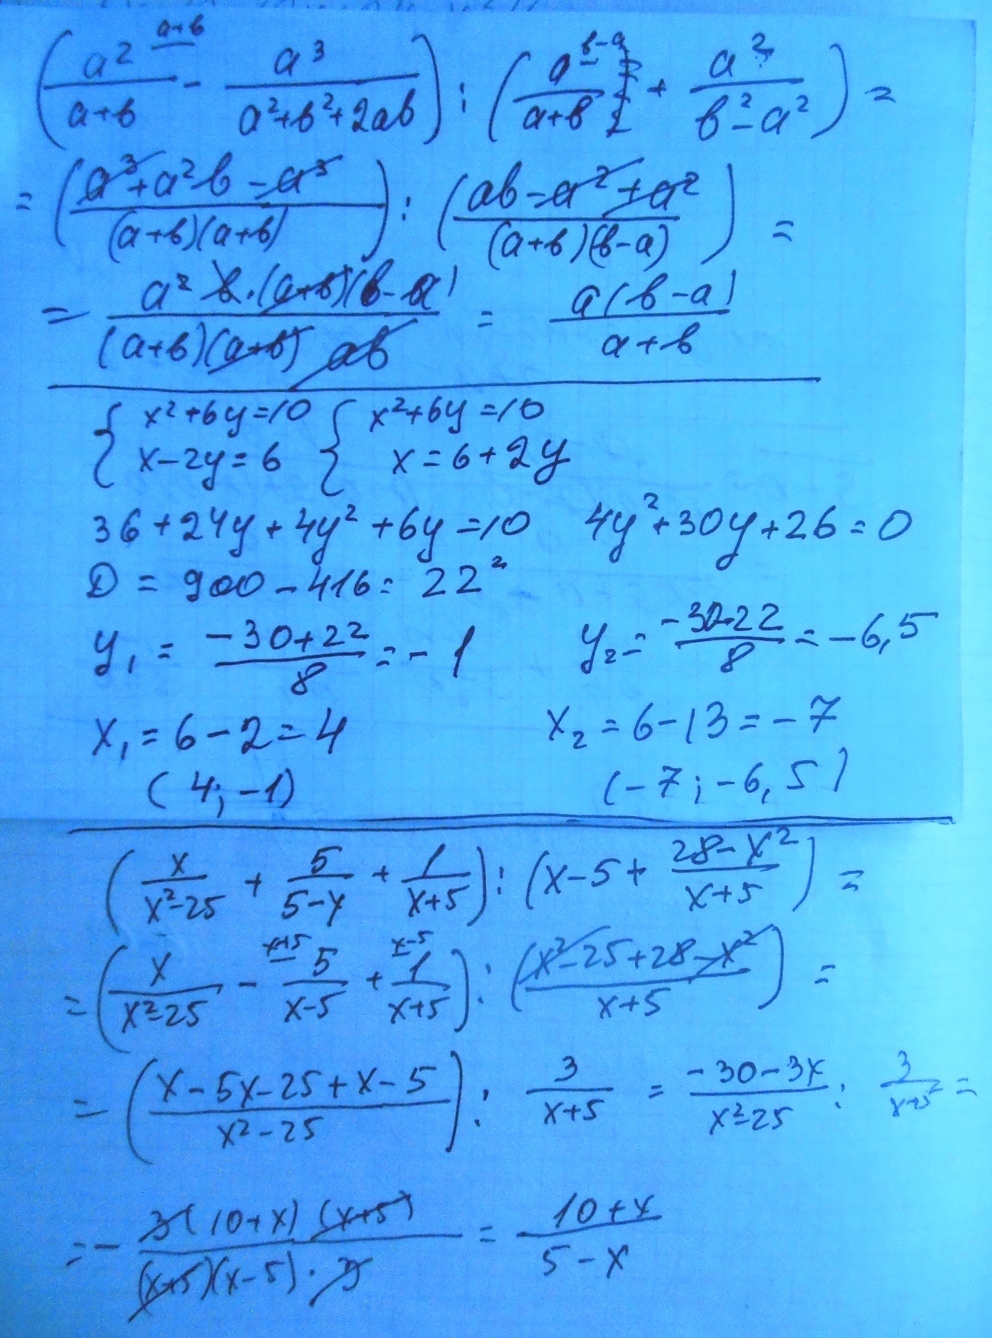 (a²/(a+в) ᵃ⁺ᵇ - a³/(a²+в²+2aв)) : (a/(a+в) ᵇ⁻ᵃ + a²/(в²-a²)) =
= ((a³+a²в-a³)/((a+в)(a+в))) : ((aв-a²+a²)/((a+в)(в-a))) =
= (a²в·(a+в)(в-a))/((a+в)(a+в) aв) = a(в-a)/(a+в)
{ x²+6y=10 { x²+6y=10
x-2y=6 x=6+2y
36+24y+4y²+6y=10 4y²+30y+26=0
D = 900-416= 22²
y₁ = (-30+22)/8 = -1 y₂= (-30-22)/8 = -6,5
x₁=6-2=4 x₂=6-13=-7
(4;-1) (-7;-6,5)
(x/(x²-25) + 5/(5-x) + 1/(x+5)) : (x-5+ (28-x²)/(x+5)) =
= (x/(x²-25) - ˣ⁺⁵ 5/(x-5) + ˣ⁻⁵ 1/(x+5)) : ((x²-25+28-x²)/(x+5)) =
= ((x-5x-25+x-5)/(x²-25)) : 3/(x+5) = (-30-3x)/(x²-25) : 3/(x+5) =
= - (3(10+x)(x+5))/((x+5)(x-5)·3) = (10+x)/(5-x)